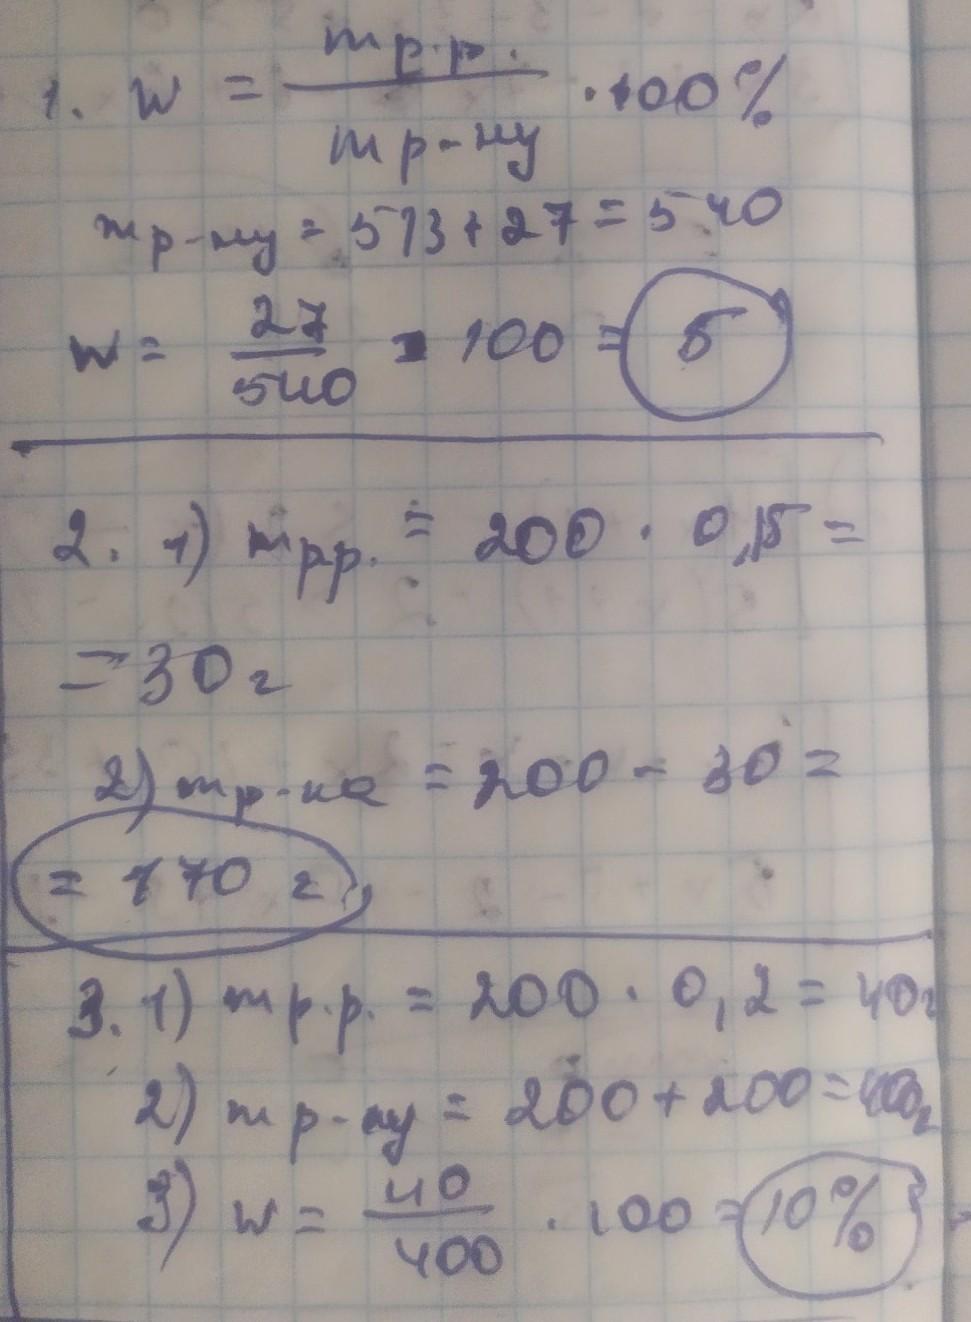 1. w = mр.р. / mр-ну · 100%
mр-ну = 513 + 27 = 540
w = 27 / 540 · 100 = 5
2. 1) mрр. = 200 · 0,15 =
= 30 г
2) mр-ка = 200 - 30 =
= 170 г.
3. 1) mр.р. = 200 · 0,2 = 40г
2) mр-ну = 200 + 200 = 400г
3) w = 40 / 400 · 100 = 10%